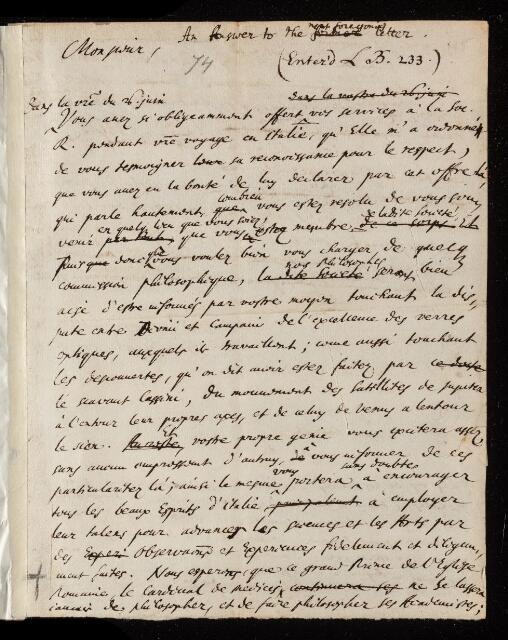 An Answer to the next foregoing former letter.
Monsieur, 74 (Enter'd L B. 233.)
dans la vostre du 26. juin
dans la vre du 26. juin
Vous avez si obligeamment offert vos services à la Soc.
R. pendant vre voyage en Italie, qu'Elle m'a ordonné
de vous tesmoigner sa reconnoissance pour le respect,
que vous avez eu la bonté de luy declarer par cet offre là,
qui parle hautement, combien que vous estez resolu de vous souvenir
en quelq lieu que vous soiez, de la dite Societé,
que vous estez membre de ce corps
Puisque donc que vous voulez bien vous charger de quelq
commission philosophique, la dite Societé nos philosophes seront bien
aise d'estre informés par vostre moyen touchant la dis,
pute entre Divini et Campani de l'excellence des verres
optiques, auxquels ils travaillent; comme aussi touchant
les descouvertes, qu'on dit avoir estez faitez par ce docte
le sçavant Cassini, du mouvement des satellites de Jupiter
à l'entour leur propres axes, et de celuy de Venus a lentour
le sien. vostre propre genie vous excitera assez
sans aucun empressement d'autruy, de vous informer de ces
particularitez là; ainsi la mesme vous portera sans doubte a encourager
tous les beaux Esprits d'Italie à employer
leur talens pour advancer les sciences et les Arts par
des Experi Observations et Experiences fidelement et diligem,
ment faites. Nous esperons que ce grand Prince de l'Eglise
Romaine, le Cardinal de Medicis, continuera ses ne se lassera
jamais de philosopher, et de faire philosopher ses Academistes;